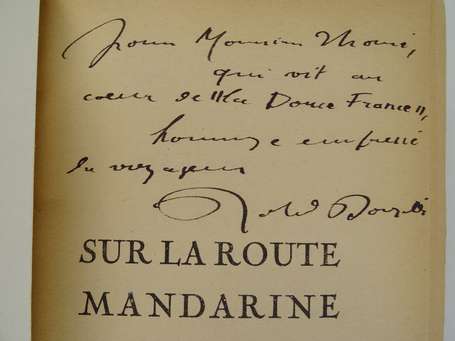 Pour Monsieur
qui vit au
coeur de "la Douce France",
hommage empressé
du voyageur
Roland Dorgelès
SUR LA ROUTE
MANDARINE